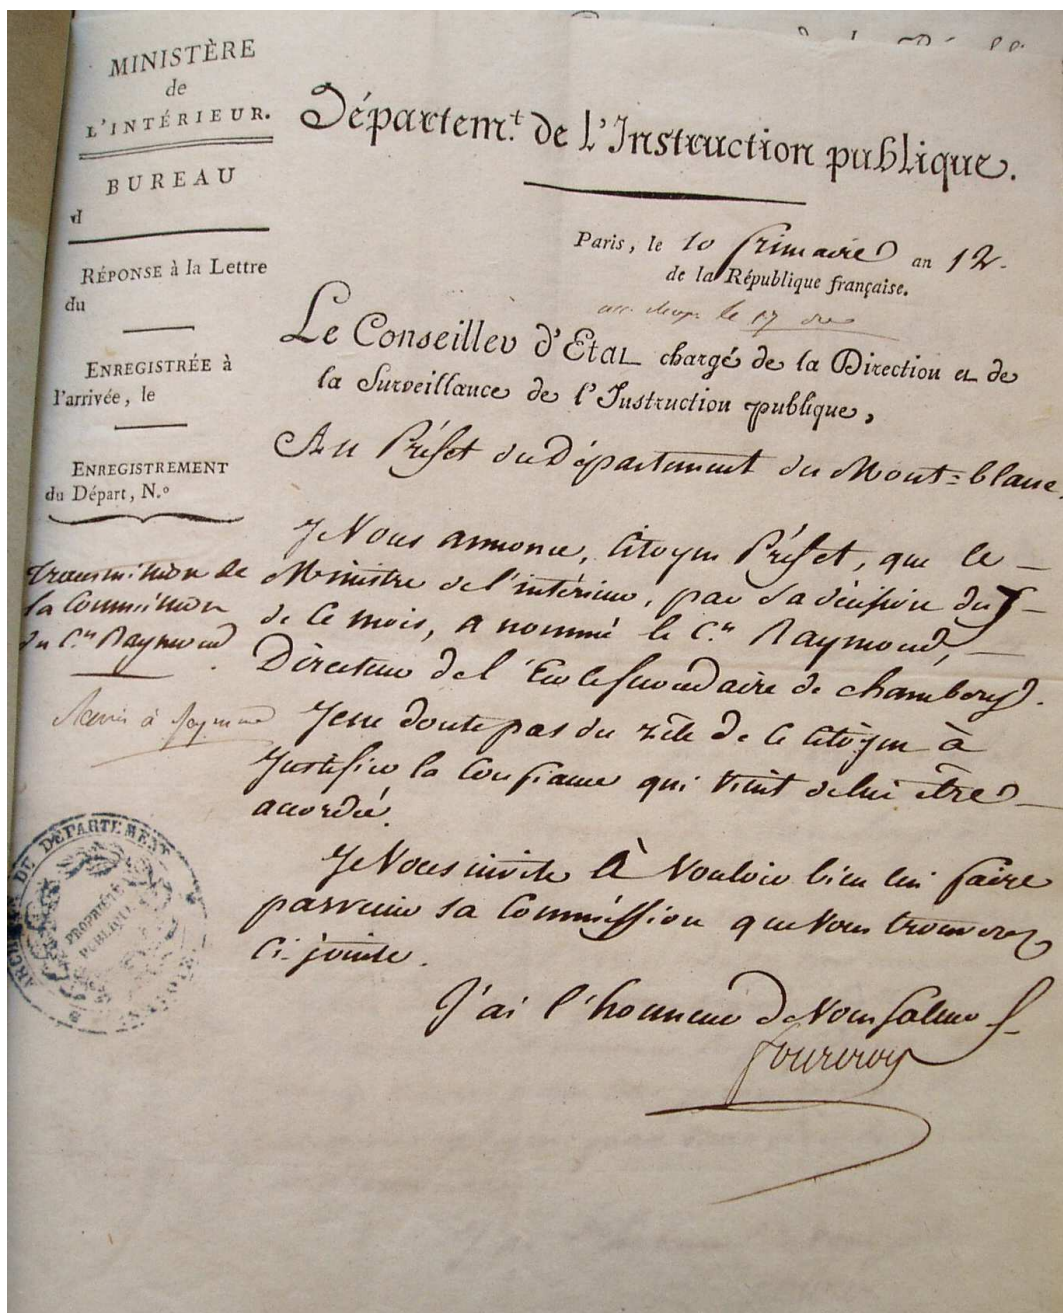 MINISTÈRE
de
L'INTÉRIEUR.
BUREAU
d
RÉPONSE à la Lettre
du
ENREGISTRÉE à
l'arrivée, le
ENREGISTREMENT
du Départ, N.º
transmission de
la Commission
du C.en Raymond
Départem.t de l'Instruction publique.
Paris, le 10 frimaire an 12.
de la République française.
le 17 do
Le Conseiller d'Etat chargé de la Direction et de
la Surveillance de l'Instruction publique,
Au Préfet du Département du Mont=blanc.
Je Vous annonce, Citoyen Préfet, que le
Ministre de l'intérieur, par sa décision du 7
de Ce mois, a nommé le C.en Raymond,
Directeur de l'Ecole Secondaire de chambery.
Je ne doute pas du zèle de Ce Citoyen à
Justifier la Confiance qui vient de lui être
accordée.
Je Vous invite à Vouloir bien lui faire
parvenir sa Commission que Vous trouverez
Ci-jointe.
J'ai l'honneur de Vous saluer
Fourcroy
ARCHIVES DU DÉPARTEMENT
PROPRIÉTÉ
PUBLIQUE